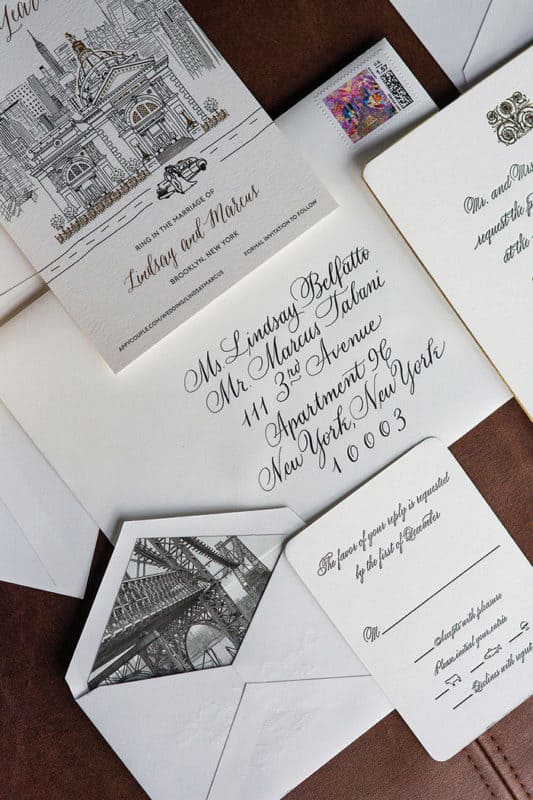 Year
RING IN THE MARRIAGE OF
Lindsay and Marcus
BROOKLYN, NEW YORK
FORMAL INVITATION TO FOLLOW
APPYCOUPLE.COM/WEDDING/LINDSAYMARCUS
Ms. Lindsay Belfatto
Mr. Marcus Talani
111 3rd Avenue
Apartment 9G
New York, New York
10003
Mr. and Mrs.
request the
at the
The favor of your reply is requested
by the first of December
M
Accepts with pleasure
Please initial your entrée
Declines with regret